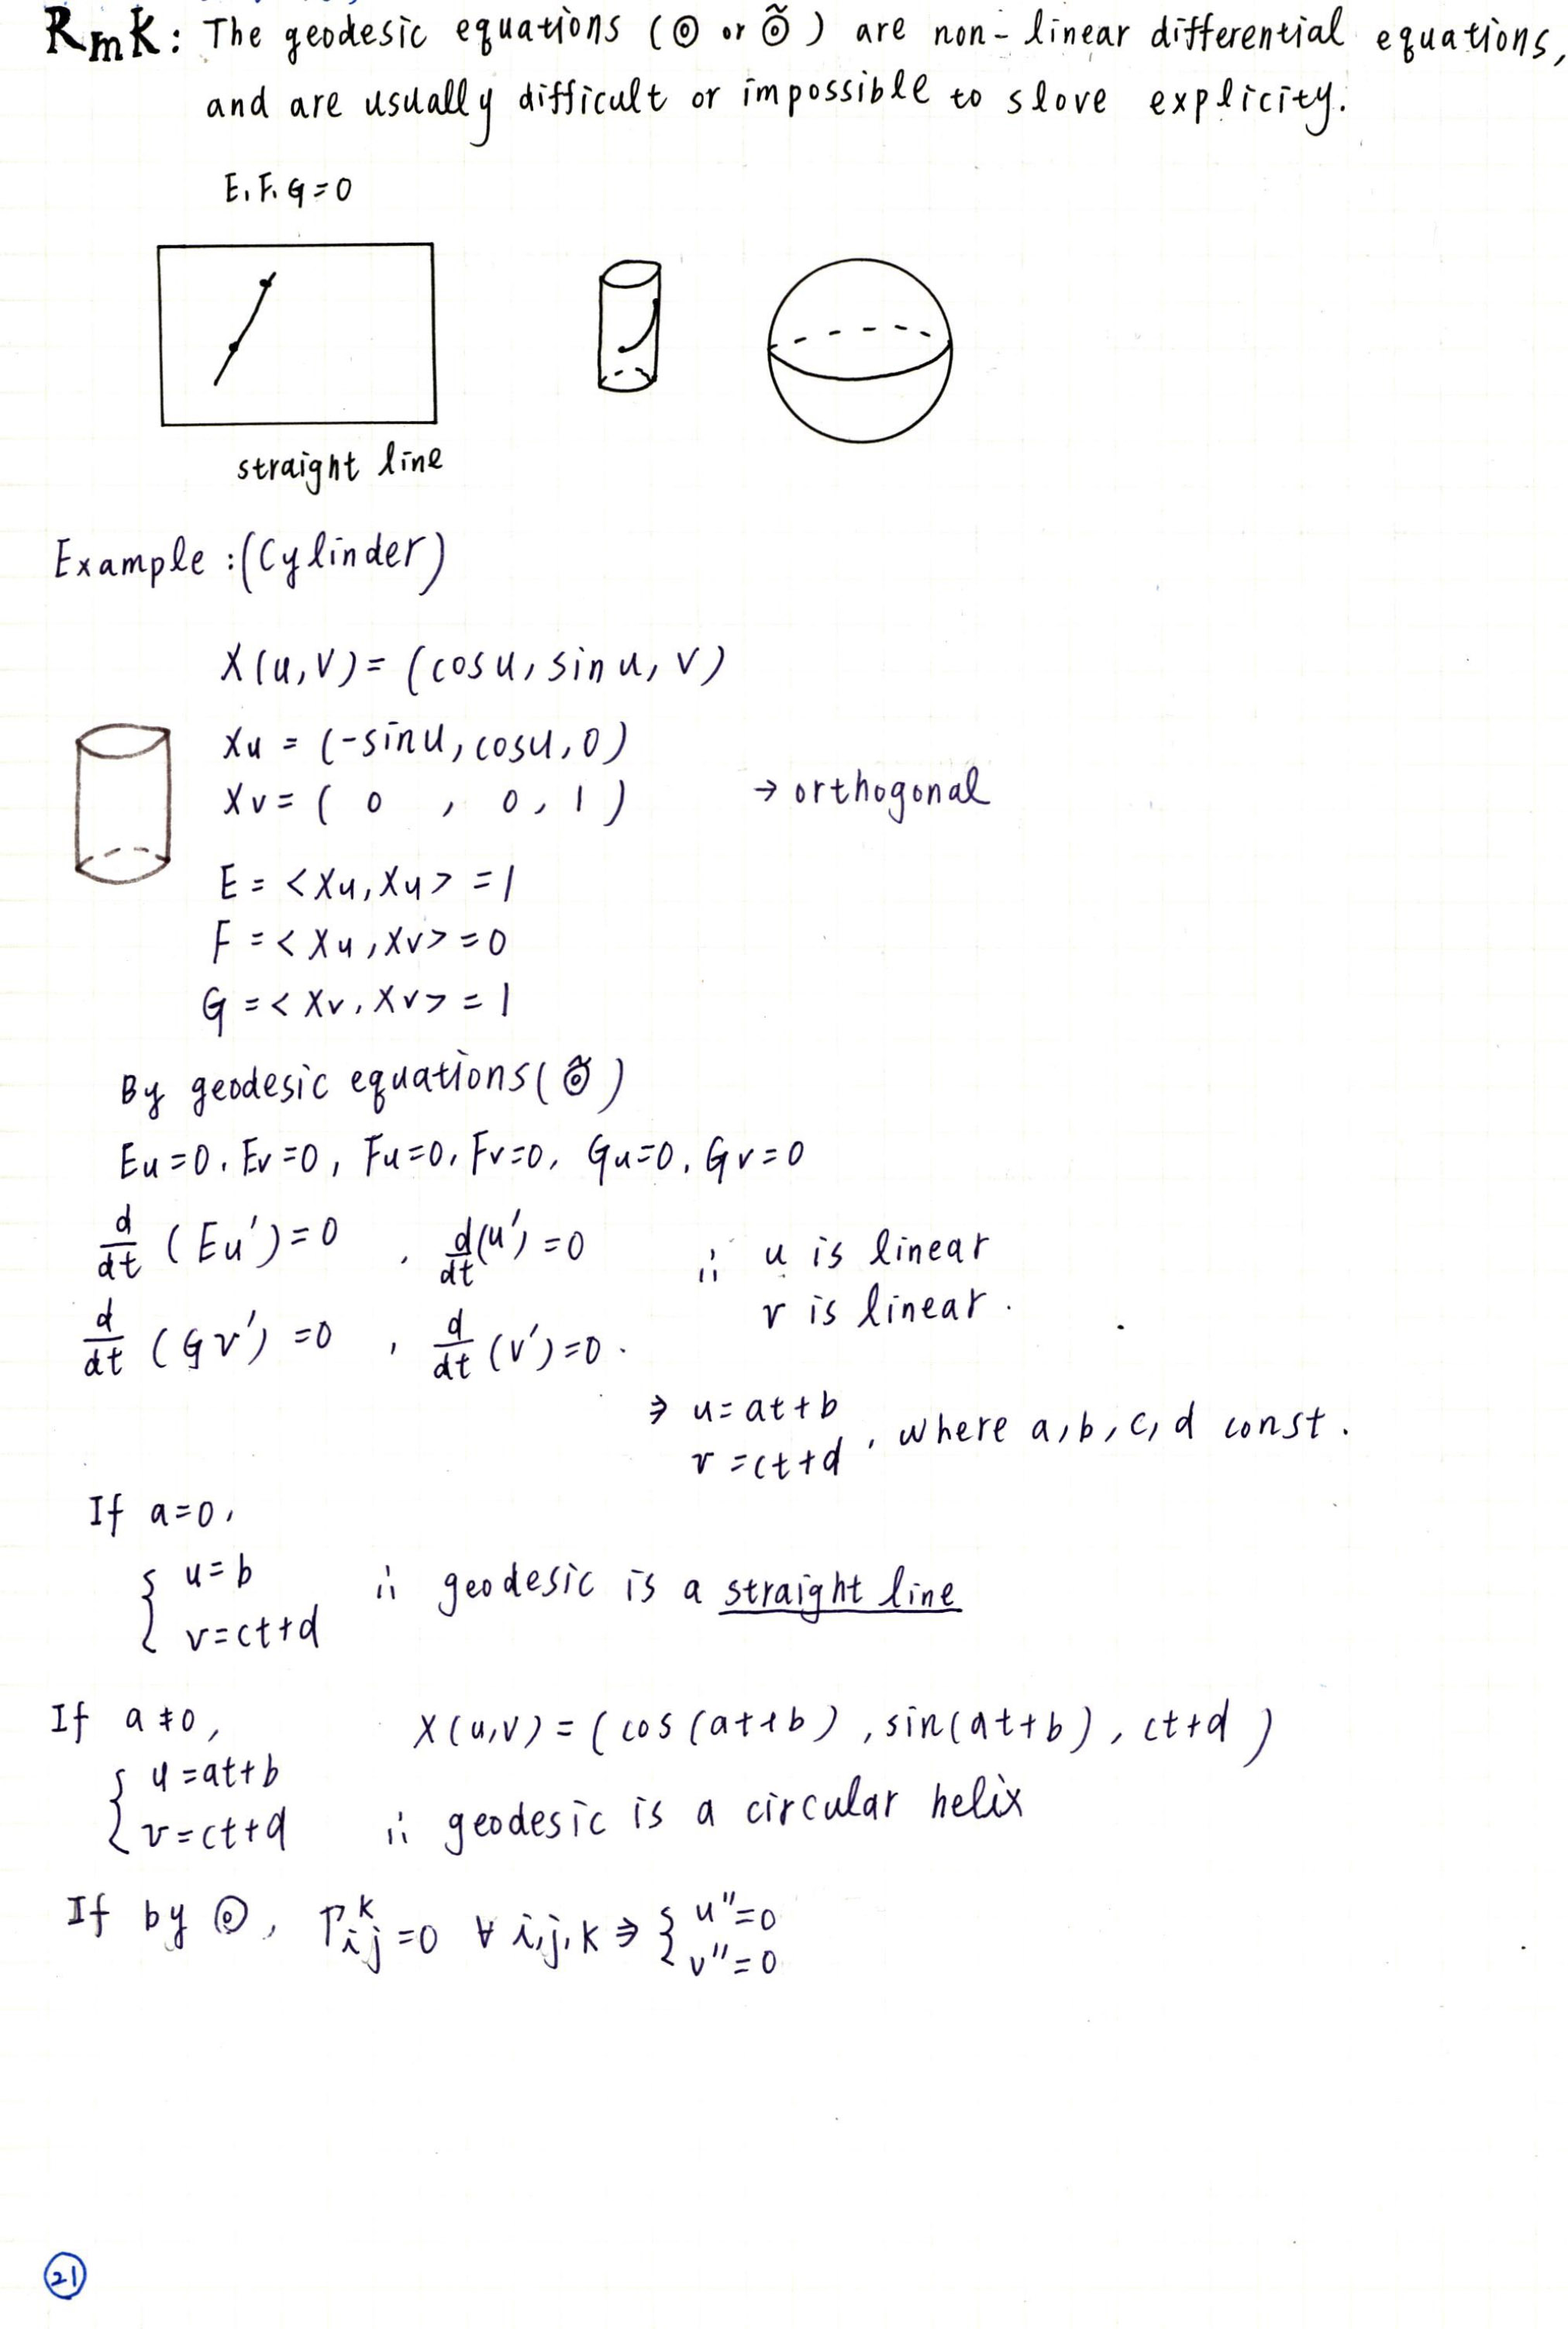 Rmk: The geodesic equations (⊚ or ⊚̃) are non-linear differential equations,
and are usually difficult or impossible to slove explicity.
E, F, G = 0
straight line
Example :(Cylinder)
X(u,v) = (cosu, sinu, v)
Xu = (-sinu, cosu, 0)
Xv = ( 0 , 0, 1 ) → orthogonal
E = <Xu, Xu> = 1
F = <Xu, Xv> = 0
G = <Xv, Xv> = 1
By geodesic equations (⊚̃)
Eu=0, Ev=0, Fu=0, Fv=0, Gu=0, Gv=0
d/dt (Eu') = 0 , d/dt (u') = 0 ∴ u is linear
v is linear.
d/dt (Gv') = 0 , d/dt (v') = 0.
⇒ u = at+b
v = ct+d , where a, b, c, d const.
If a=0,
{ u=b
v=ct+d ∴ geodesic is a straight line
If a≠0, X(u,v) = (cos(at+b), sin(at+b), ct+d)
{ u=at+b
v=ct+d ∴ geodesic is a circular helix
If by ⊚, Γᵢⱼᵏ=0 ∀ i,j,k ⇒ { u''=0
v''=0
21